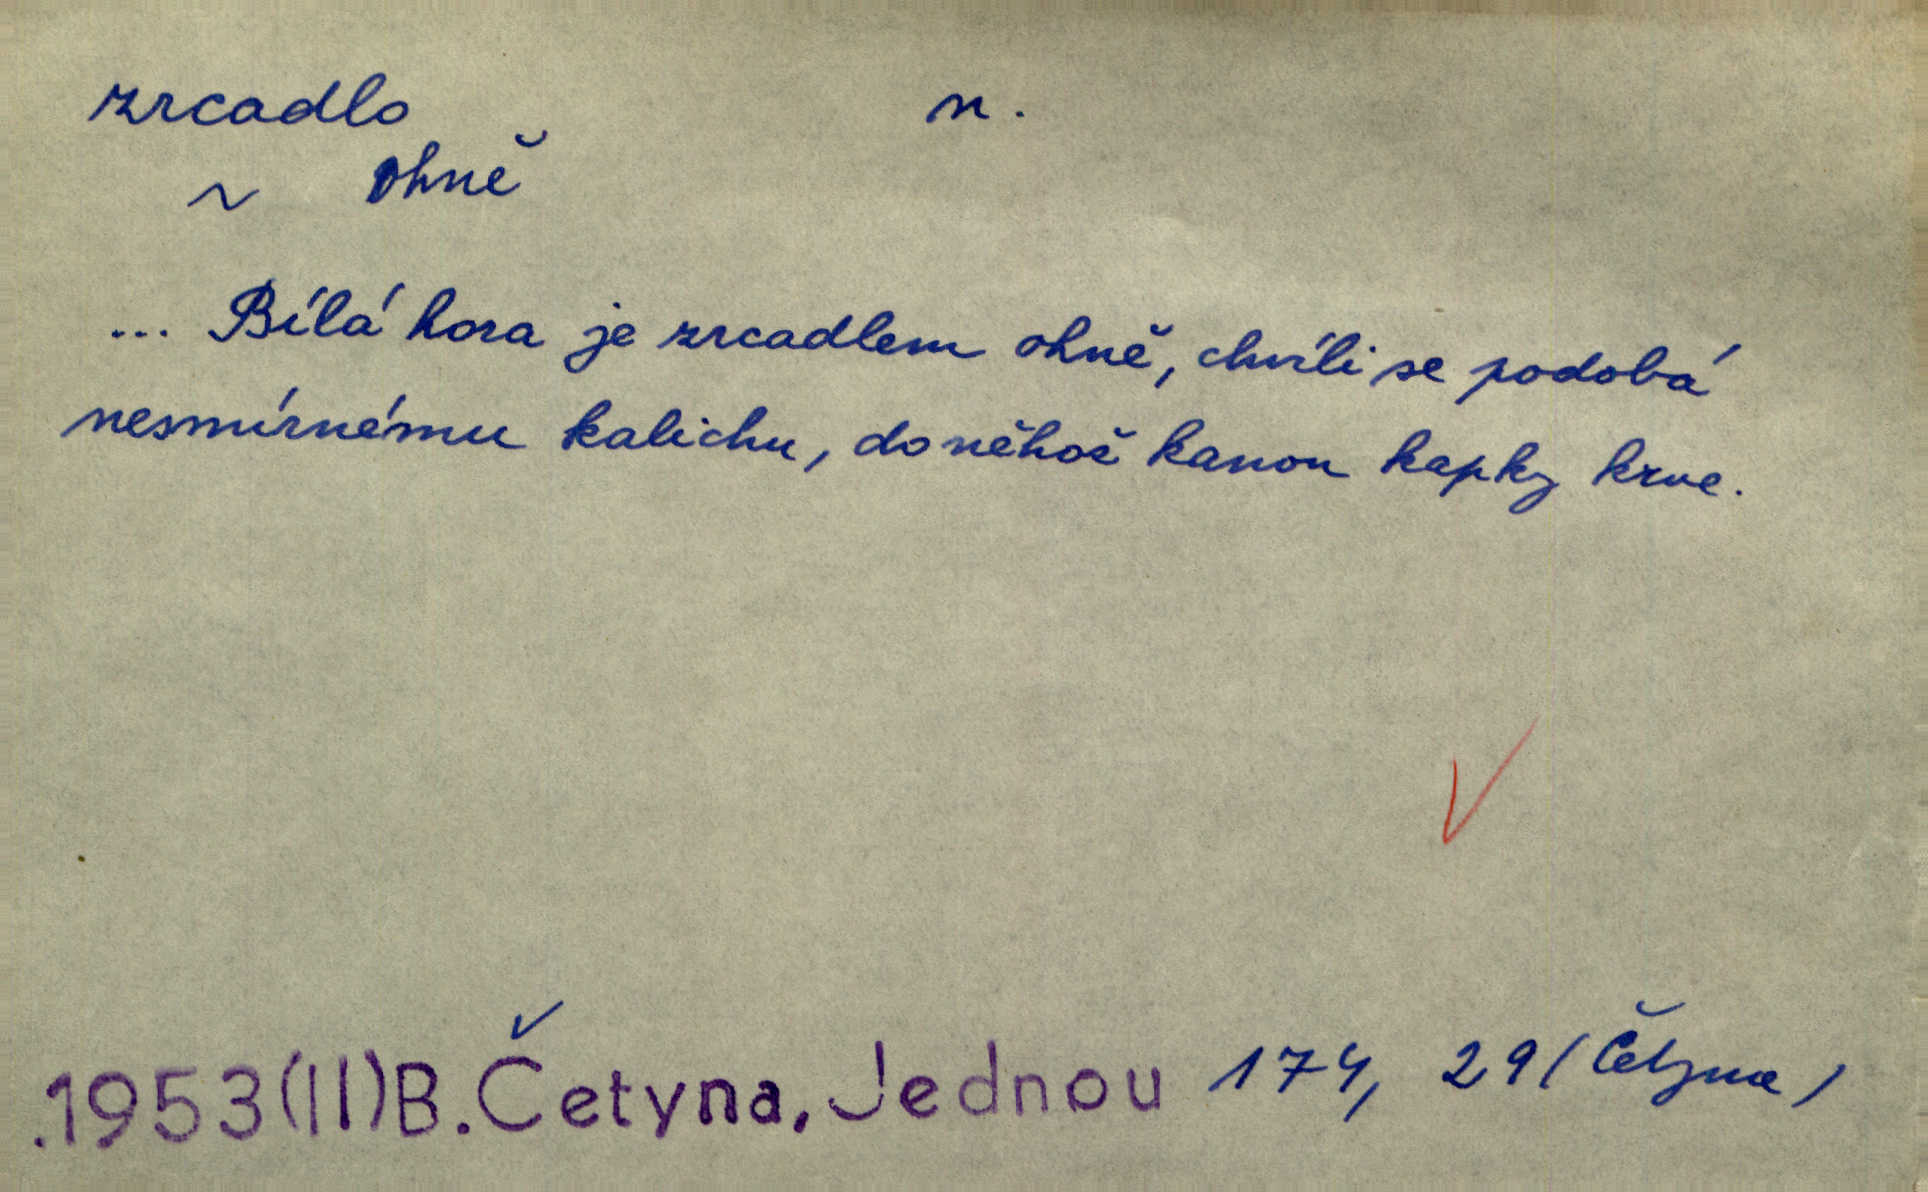 zrcadlo n.
~ ohně
... Bílá hora je zrcadlem ohně, chvíli se podobá
nesmírnému kalichu, do něhož kanou kapky krve.
.1953(II)B. Četyna, Jednou 174, 29 (Četyna)